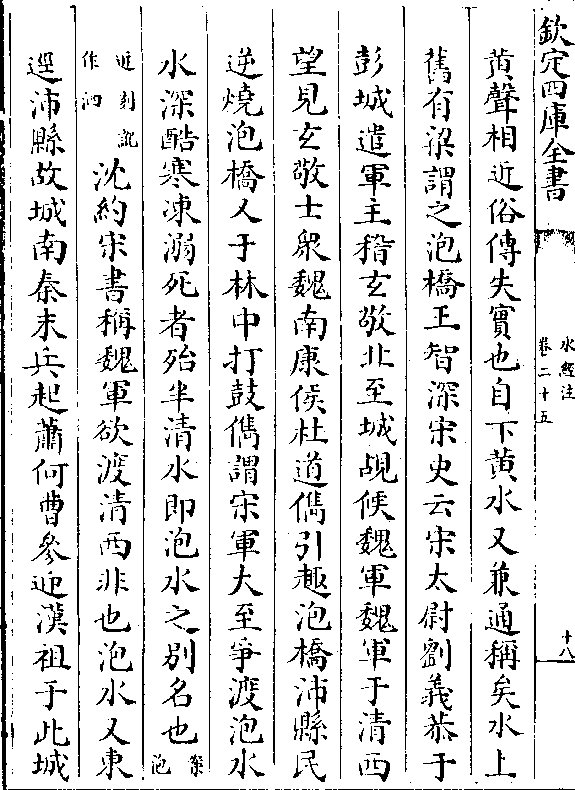 欽定四庫全書
水經注
卷二十五
十八
黄聲相近俗傳失實也自下黄水又兼通稱矣水上
舊有梁謂之泡橋王智深宋史云宋太尉劉義恭于
彭城遣軍主稽玄敬北至城覘候魏軍魏軍于清西
望見玄敬士衆魏南康侯杜道儁引趣泡橋沛縣民
逆燒泡橋又于林中打鼓儁謂宋軍大至爭渡泡水
水深酷寒凍溺死者殆半清水即泡水之别名也案泡
近刻訛作泗沈約宋書稱魏軍欲渡清西非也泡水又東
逕沛縣故城南秦末兵起蕭何曹參迎漢祖于此城